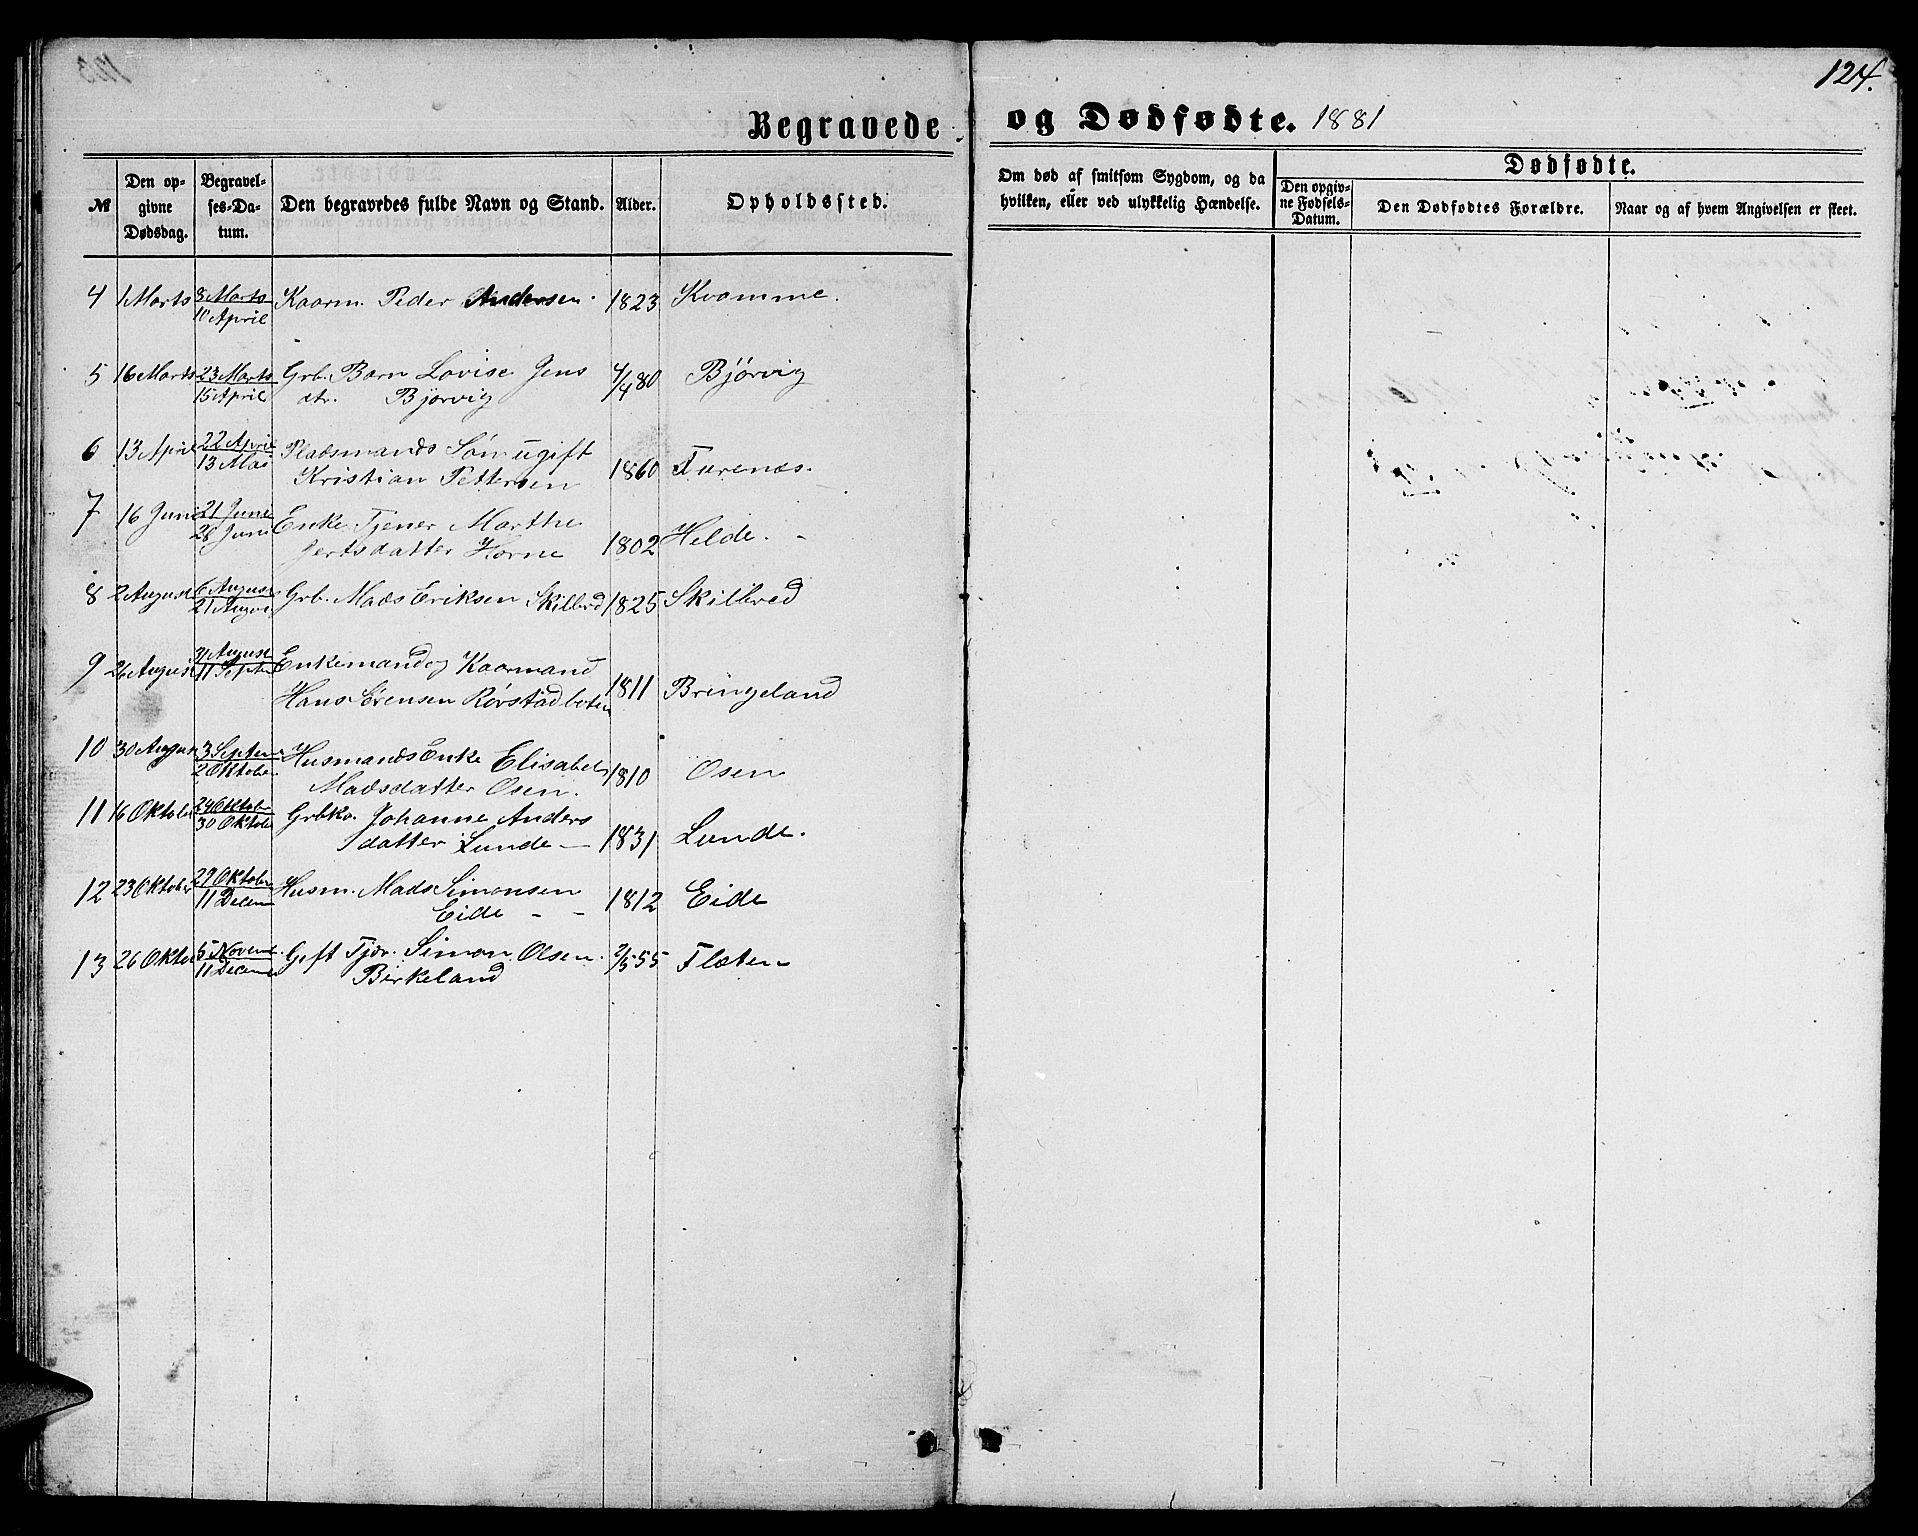 124.
Begravede og Dødfødte. 1881
№
Den opgivne Dødsdag.
Begravelses-Datum.
Den begravedes fulde Navn og Stand.
Alder.
Opholdssted.
Om død af smitsom Sygdom, og da hvilken, eller ved ulykkelig Hændelse.
Dødfødte.
Den opgivne Fødsels-Datum.
Den Dødfødtes Forældre.
Naar og af hvem Angivelsen er skeet.
4 1 Marts 8 Marts Kaarm. Peder Andersen. 1823 Kvamme.
10 April
5 16 Marts 23 Marts Grb. Barn Lovise Jens 4/4 80 Bjørvig
15 April dtr. Bjørvig
6 13 April 22 April Pladsmands Søn ugift
13 Mai Kristian Pettersen 1860 Furenæs.
7 16 Juni 21 June Enke Tjener Marthe
28 Juni Gertsdatter Horne 1802 Helde. -
8 2 August 6 August Grb. Mads Eriksen Skilbrd 1825 Skilbred
21 August
9 26 August 31 August Enkemand og Kaarmand
11 Septbr Hans Sørensen Rørstadbotn 1811 Bringeland
10 30 August 3 Septem Husmands Enke Elisabet
2 Oktober Madsdatter Osen. 1810 Osen
11 16 Oktober 24 Oktober Grbko. Johanne Anders
30 Oktober datter Lunde - 1831 Lunde.
12 23 Oktober 29 Oktober Husm. Mads Simonsen
11 Decem Eide - - 1812 Eide
13 26 Oktob 5 Novem. Gift Tjdr. Simon Olsen. 2/5 55 Flæten
11 Decem Birkeland